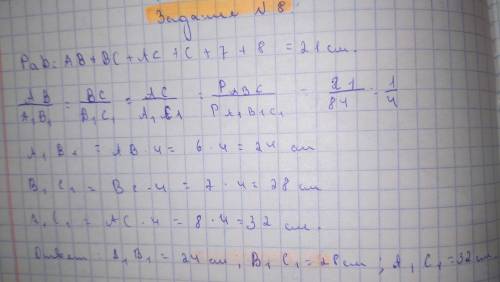 Задание №8
Pab: AB + BC + AC + C + 7 + 8 = 21 см.
AB/A₁B₁ = BC/B₁C₁ = AC/A₁C₁ = PABC/PA₁B₁C₁ = 21/84 = 1/4
A₁B₁ = AB · 4 = 6 · 4 = 24 см
B₁C₁ = BC · 4 = 7 · 4 = 28 см
A₁C₁ = AC · 4 = 8 · 4 = 32 см.
Ответ: A₁B₁ = 24 см; B₁C₁ = 28 см; A₁C₁ = 32 см.